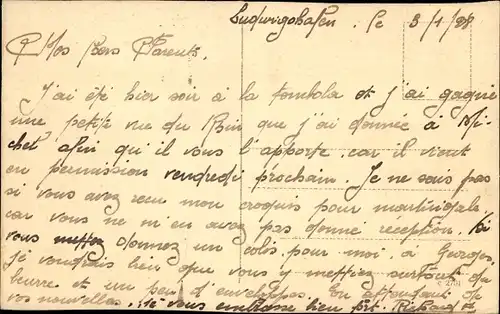 Ludwigshafen. le 3/1/28
Mes Chers Parents.
J'ai été hier soir à la tombola et j'ai gagné
une petite vue du Rhin que j'ai donnée à Mi-
chel afin qu'il vous l'apporte car il vient
en permission vendredi prochain. Je ne sais pas
si vous avez reçu mon croquis pour martingale
car vous ne m'en avez pas donné réception. Si
vous donnez un colis pour moi, à Georges,
je voudrais bien que vous y mettiez surtout du
beurre et un peu d'enveloppes. En attendant de
vos nouvelles, je vous embrasse bien fort. Richard